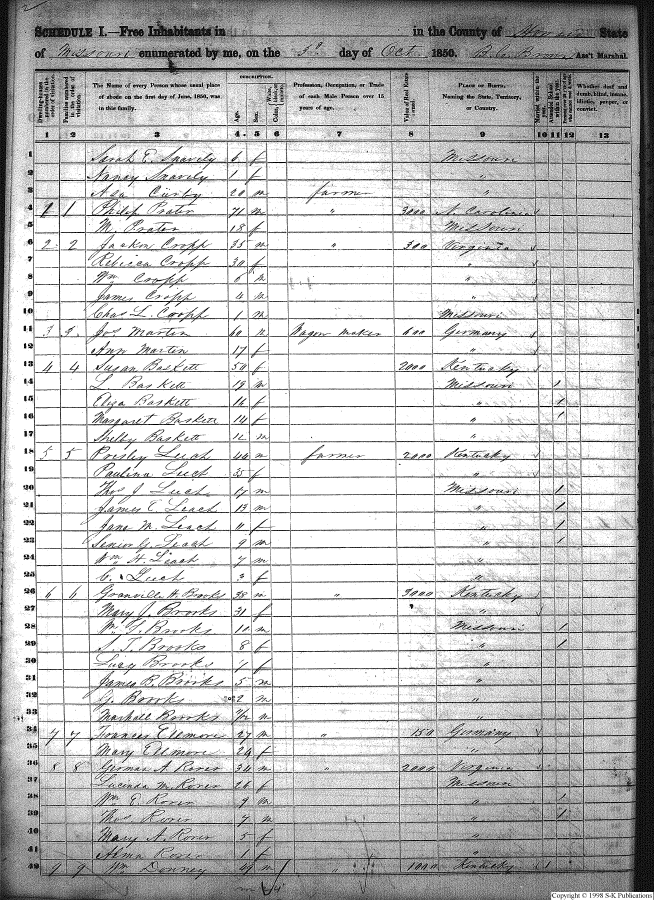 2
SCHEDULE I.—Free Inhabitants in in the County of Howard State
of Missouri enumerated by me, on the 5th day of Oct 1850. Ass't Marshal.
DESCRIPTION.
Dwelling-houses numbered in the order of visitation. Families numbered in the order of visitation. The Name of every Person whose usual place of abode on the first day of June, 1850, was in this family. Age. Sex. Profession, Occupation, or Trade of each Male Person over 15 years of age. Value of Real Estate owned. PLACE OF BIRTH, Naming the State, Territory, or Country. Married within the year. Whether deaf and dumb, blind, insane, idiotic, pauper, or convict.
1 2 3 4 5 6 7 8 9 10 11 12 13
1 Sarah E. Snavely 6 f Missouri
2 Nancy Snavely 1 f "
3 Asa Curby 20 m farmer "
4 1 1 Philip Prater 71 m " 3000 N. Carolina
5 M. Prater 18 f Missouri
6 2 2 Jackson Cropp 35 m " 300 Virginia
7 Rebecca Cropp 30 f "
8 Wm Cropp 6 m "
9 James Cropp 4 m "
10 Chas L. Cropp 1 m Missouri
11 3 3 Jos Martin 60 m Wagon maker 600 Germany
12 Ann Martin 17 f "
13 4 4 Susan Baskett 50 f 2000 Kentucky
14 L Baskett 19 m Missouri 1
15 Eliza Baskett 16 f " 1
16 Margaret Baskett 14 f " 1
17 Shelby Baskett 12 m "
18 5 5 Presley Leach 44 m farmer 2000 Kentucky
19 Paulina Leach 35 f "
20 Thos J. Leach 17 m Missouri 1
21 James E Leach 13 m " 1
22 Jane M. Leach 11 f " 1
23 Senior Y. Leach 9 m " 1
24 Wm H. Leach 7 m "
25 C. Leach 3 f "
26 6 6 Granville W. Brooks 38 m " 3000 Kentucky
27 Mary J. Brooks 31 f "
28 Wm G. Brooks 10 m Missouri 1
29 S. T. Brooks 8 f " 1
30 Lucy Brooks 7 f "
31 James R. Brooks 5 m "
32 G. Brooks 2 m "
33 Marshall Brooks m "
34 7 7 Frances Ellmore 27 m " 150 Germany
35 Mary Ellmore 24 f "
36 8 8 German A. Rorer 34 m " 2000 Virginia
37 Lucinda M. Rorer 26 f Missouri
38 Wm E. Rorer 9 m " 1
39 Thos Rorer 7 m " 1
40 Mary A. Rorer 5 f "
41 Alma Rorer 1 f "
42 9 9 Wm Donney 49 m " 1000 Kentucky 1
Copyright © 1998 S-K Publications